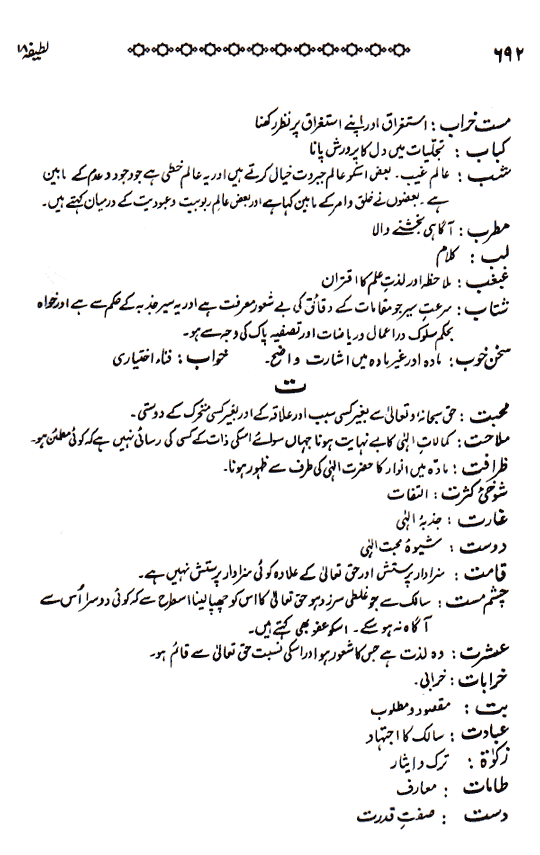 ۶۹۲ لطیفہ ۱۸
مست خراب : استغراق اور اپنے استغراق پر نظر رکھنا
کباب : تجلّیات میں دل کا پرورش پانا
شب : عالم غیب۔ بعض اسکو عالم جبروت خیال کرتے ہیں اور یہ عالم خطی ہے جو وجود و عدم کے مابین
ہے۔ بعضوں نے خلق و امر کے مابین کہا ہے اور بعض عالم ربوبیت و عبودیت کے درمیان کہتے ہیں۔
مطرب : آگاہی بخشنے والا
لب : کلام
غبغب : ملاحظہ اور لذتِ علم کا اقتران
شتاب : سرعتِ سیر جو مقامات کے دقائق کی بے شعور معرفت ہے اور یہ سیر جذبہ کے حکم سے ہے اور خواہ
بحکم سلوک در اعمال و ریاضات اور تصفیہ پاک کی وجہ سے ہو۔
سخن خوب : مادہ اور غیر مادہ میں اشارت واضح۔ خواب : فناء اختیاری
ت
محبت : حق سبحانہٗ و تعالیٰ سے بغیر کسی سبب اور علاقہ کے اور بغیر کسی متحرک کے دوستی۔
ملاحت : کمالاتِ الٰہی کا بے نہایت ہونا جہاں سوائے اسکی ذات کے کسی کی رسائی نہیں ہے کہ کوئی مطمئن ہو۔
ظرافت : مادّہ میں انوار کا حضرت الٰہی کی طرف سے ظہور ہونا۔
شوخئ کثرت : التفات
غارت : جذبۂ الٰہی
دوست : شیوۂ محبت الٰہی
قامت : سزاوار پرستش اور حق تعالیٰ کے علاوہ کوئی سزاوار پرستش نہیں ہے۔
چشم مست : سالک سے جو غلطی سرزد ہو حق تعالیٰ کا اس کو چھپا لینا اسطرح سے کہ کوئی دوسرا اُس سے
آگاہ نہ ہو سکے۔ اسکو عفو بھی کہتے ہیں۔
عشرت : وہ لذت ہے جس کا شعور ہو اور اسکی نسبت حق تعالیٰ سے قائم ہو۔
خرابات : خرابی۔
بت : مقصود و مطلوب
عبادت : سالک کا اجتہاد
زکوٰۃ : ترک و ایثار
طامات : معارف
دست : صفتِ قدرت